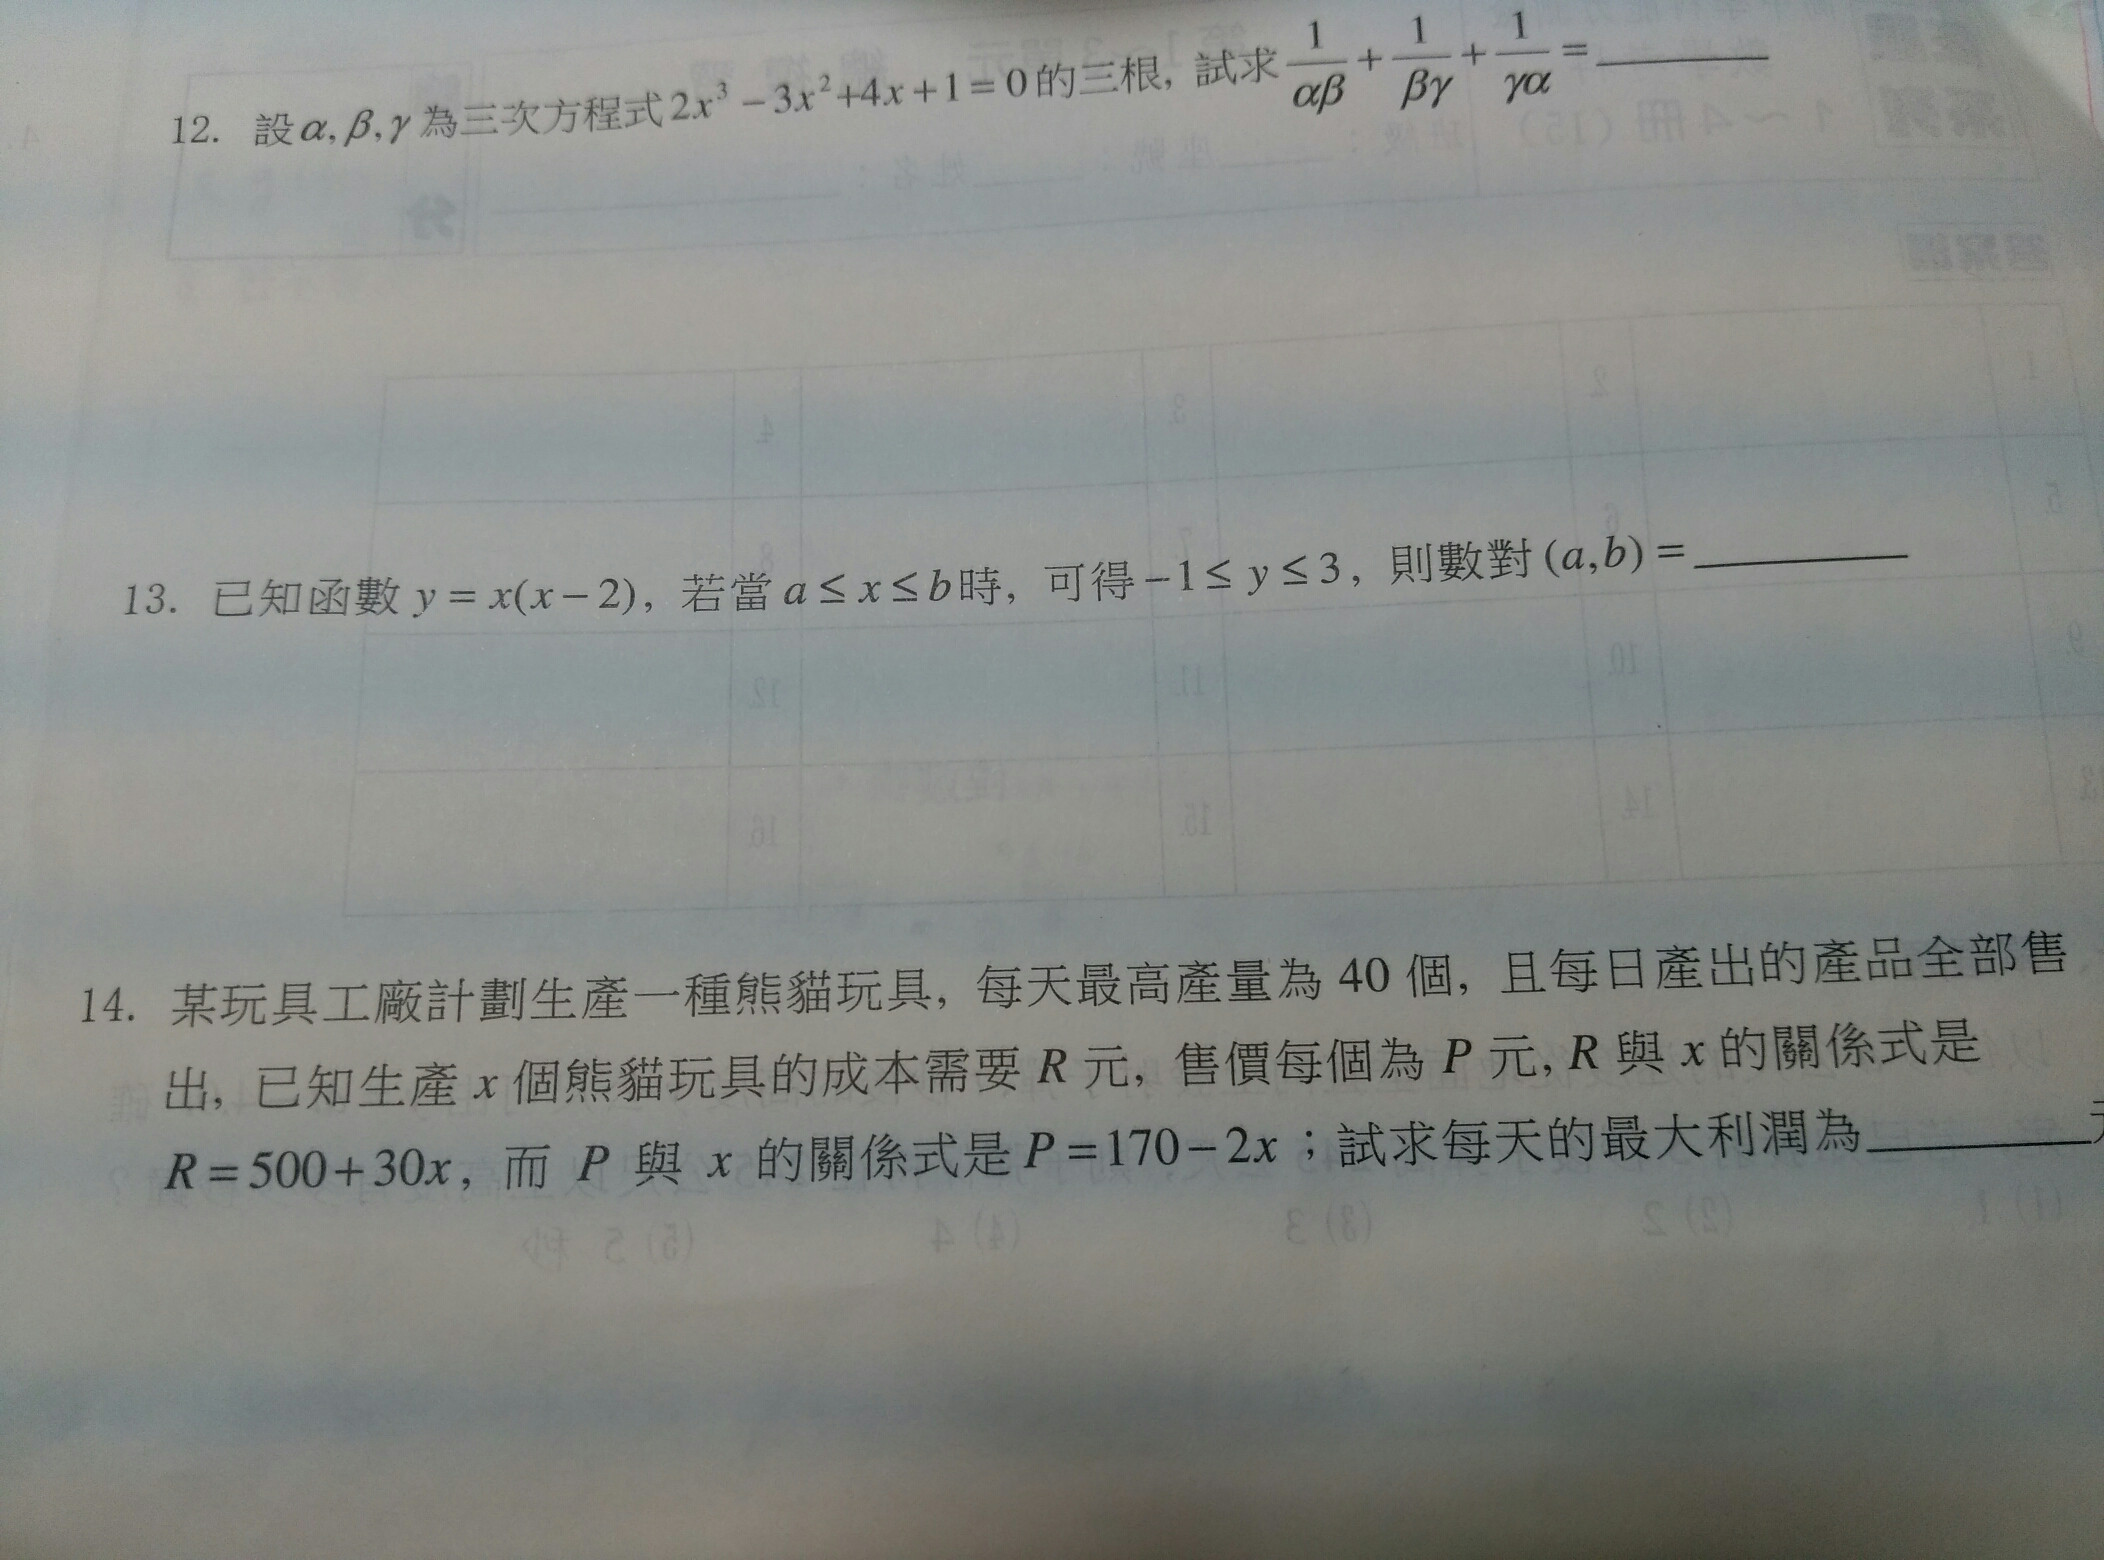 12. 設α, β, γ為三次方程式2x³－3x²+4x+1＝0的三根, 試求 1/αβ + 1/βγ + 1/γα = ______
13. 已知函數 y＝x(x－2), 若當 a≤x≤b時, 可得－1≤y≤3, 則數對(a,b)＝______
14. 某玩具工廠計劃生產一種熊貓玩具, 每天最高產量為 40 個, 且每日產出的產品全部售
出, 已知生產 x 個熊貓玩具的成本需要 R 元, 售價每個為 P 元, R 與 x 的關係式是
R＝500+30x, 而 P 與 x 的關係式是 P＝170－2x；試求每天的最大利潤為______